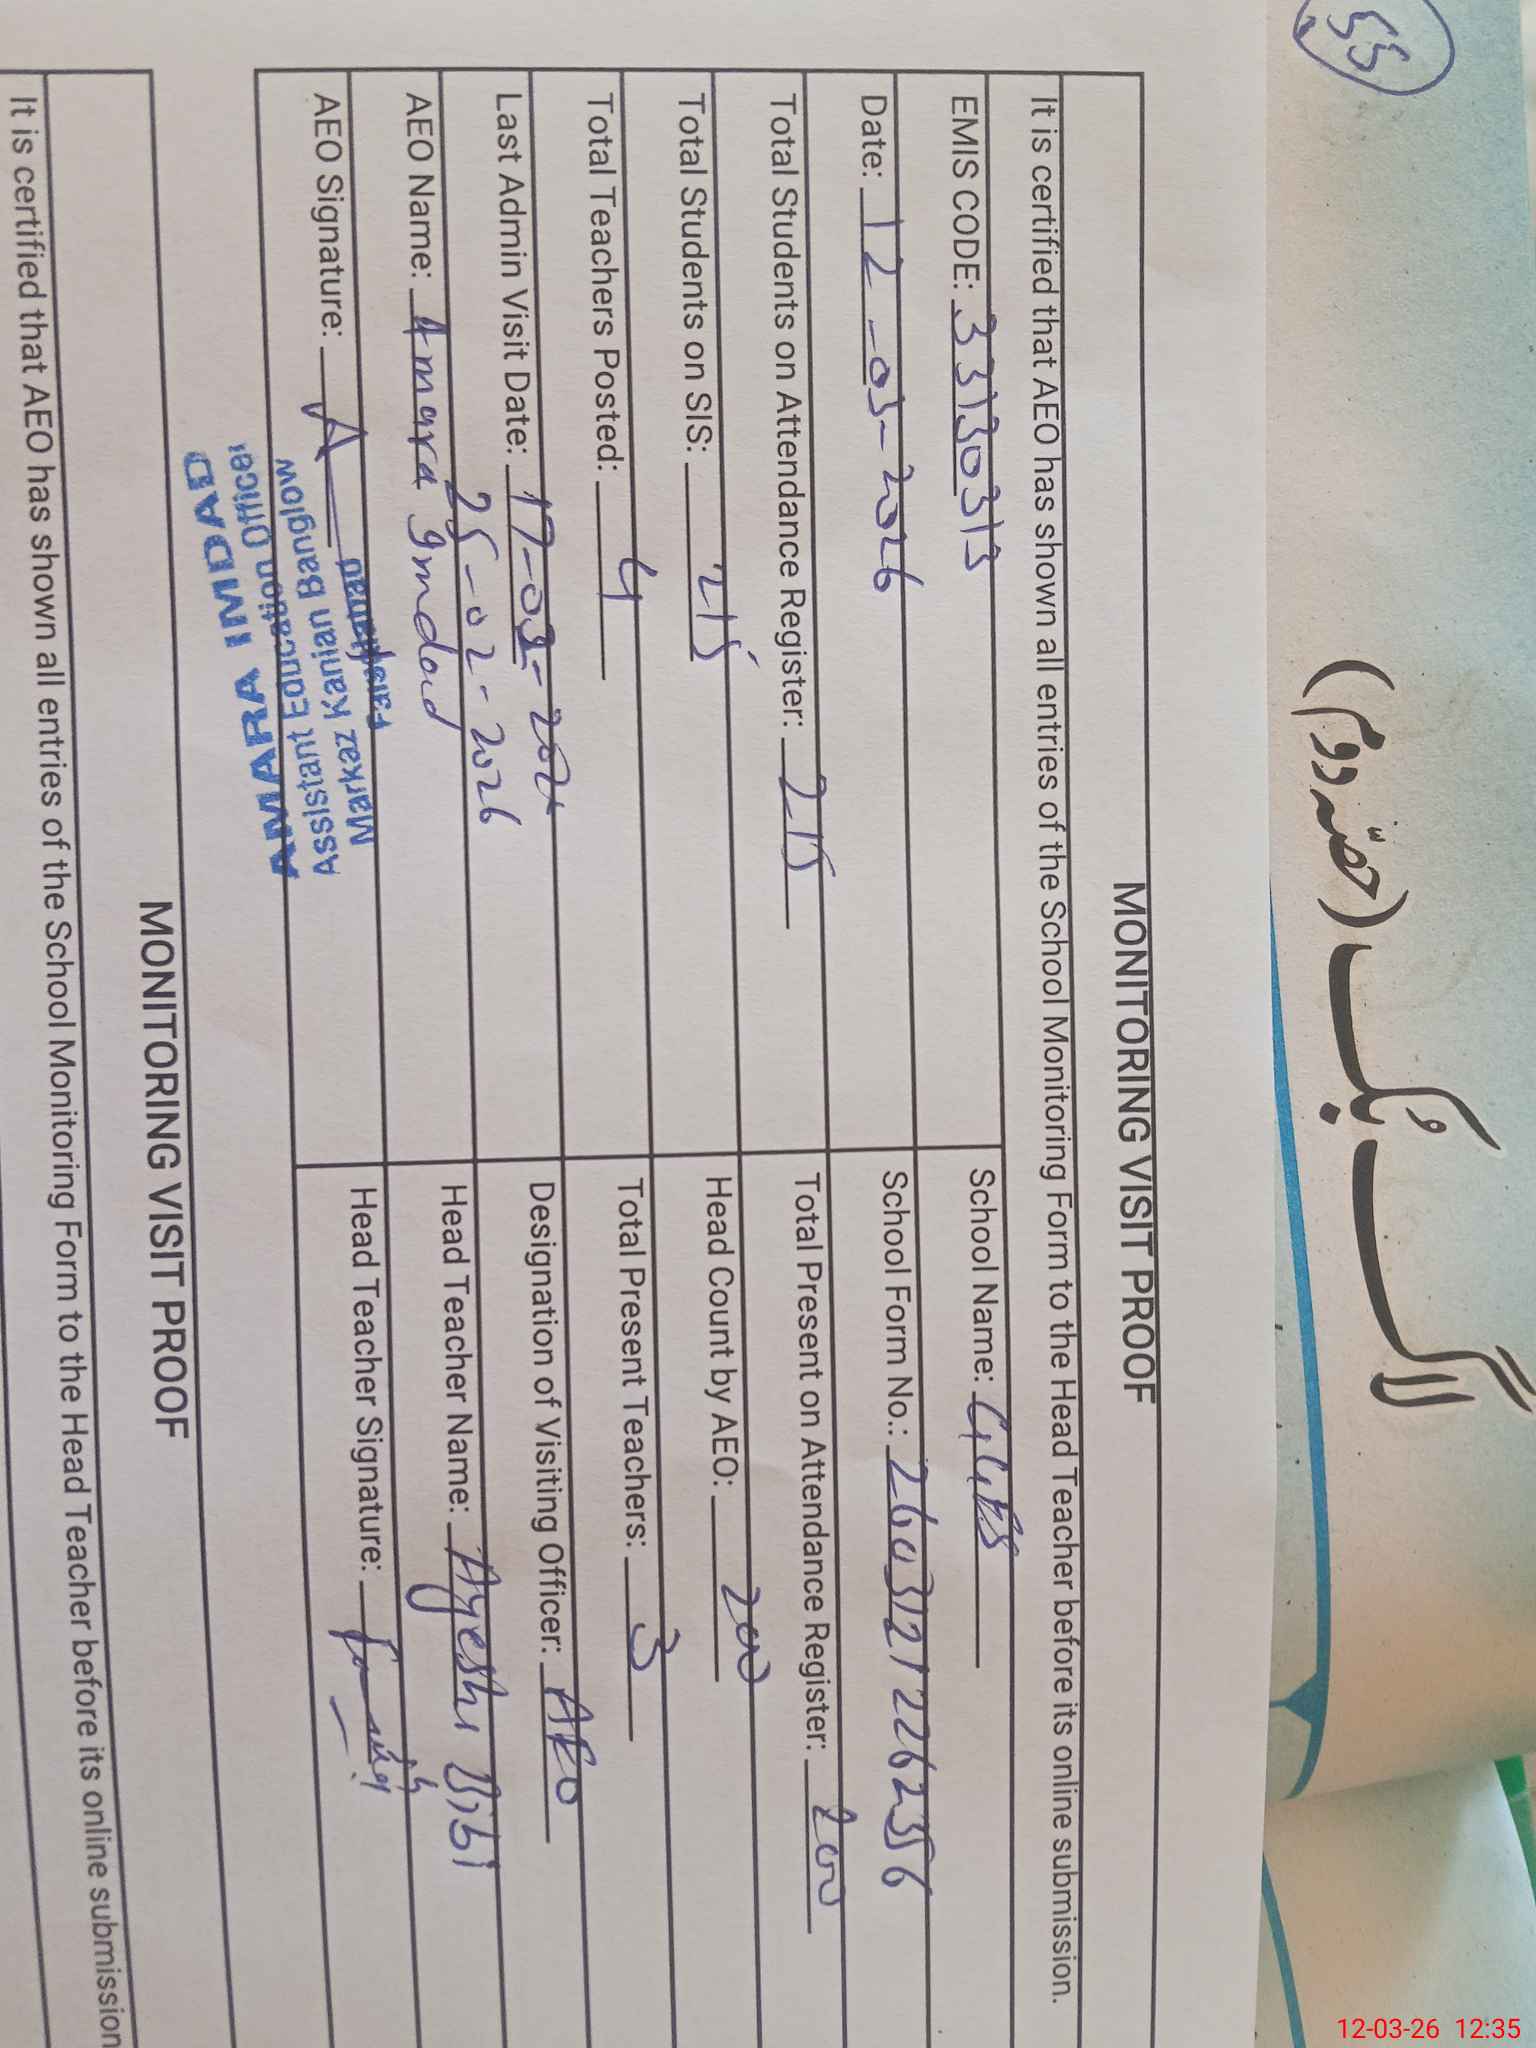 55
لاگ بُک (حصّہ دوم)
MONITORING VISIT PROOF
It is certified that AEO has shown all entries of the School Monitoring Form to the Head Teacher before its online submission.
EMIS CODE: 33130313
School Name:
Date: 12-03-2026
School Form No.:
Total Students on Attendance Register: 215
Total Present on Attendance Register: 200
Total Students on SIS: 215
Head Count by AEO: 200
Total Teachers Posted: 4
Total Present Teachers: 3
Last Admin Visit Date: 25-02-2026
Designation of Visiting Officer: AEO
AEO Name: Amara Imdad
Head Teacher Name: Ayesha Bibi
AEO Signature:
Head Teacher Signature:
AMMARA IMDAD
Assistant Education Officer
Markaz Kanian Banglow
MONITORING VISIT PROOF
It is certified that AEO has shown all entries of the School Monitoring Form to the Head Teacher before its online submission
12-03-26 12:35